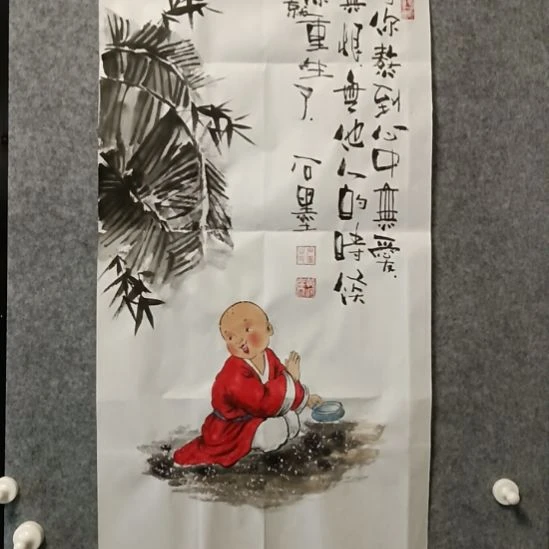 你熬到心中無愛
無恨無他人的時候
你就重生了
石墨